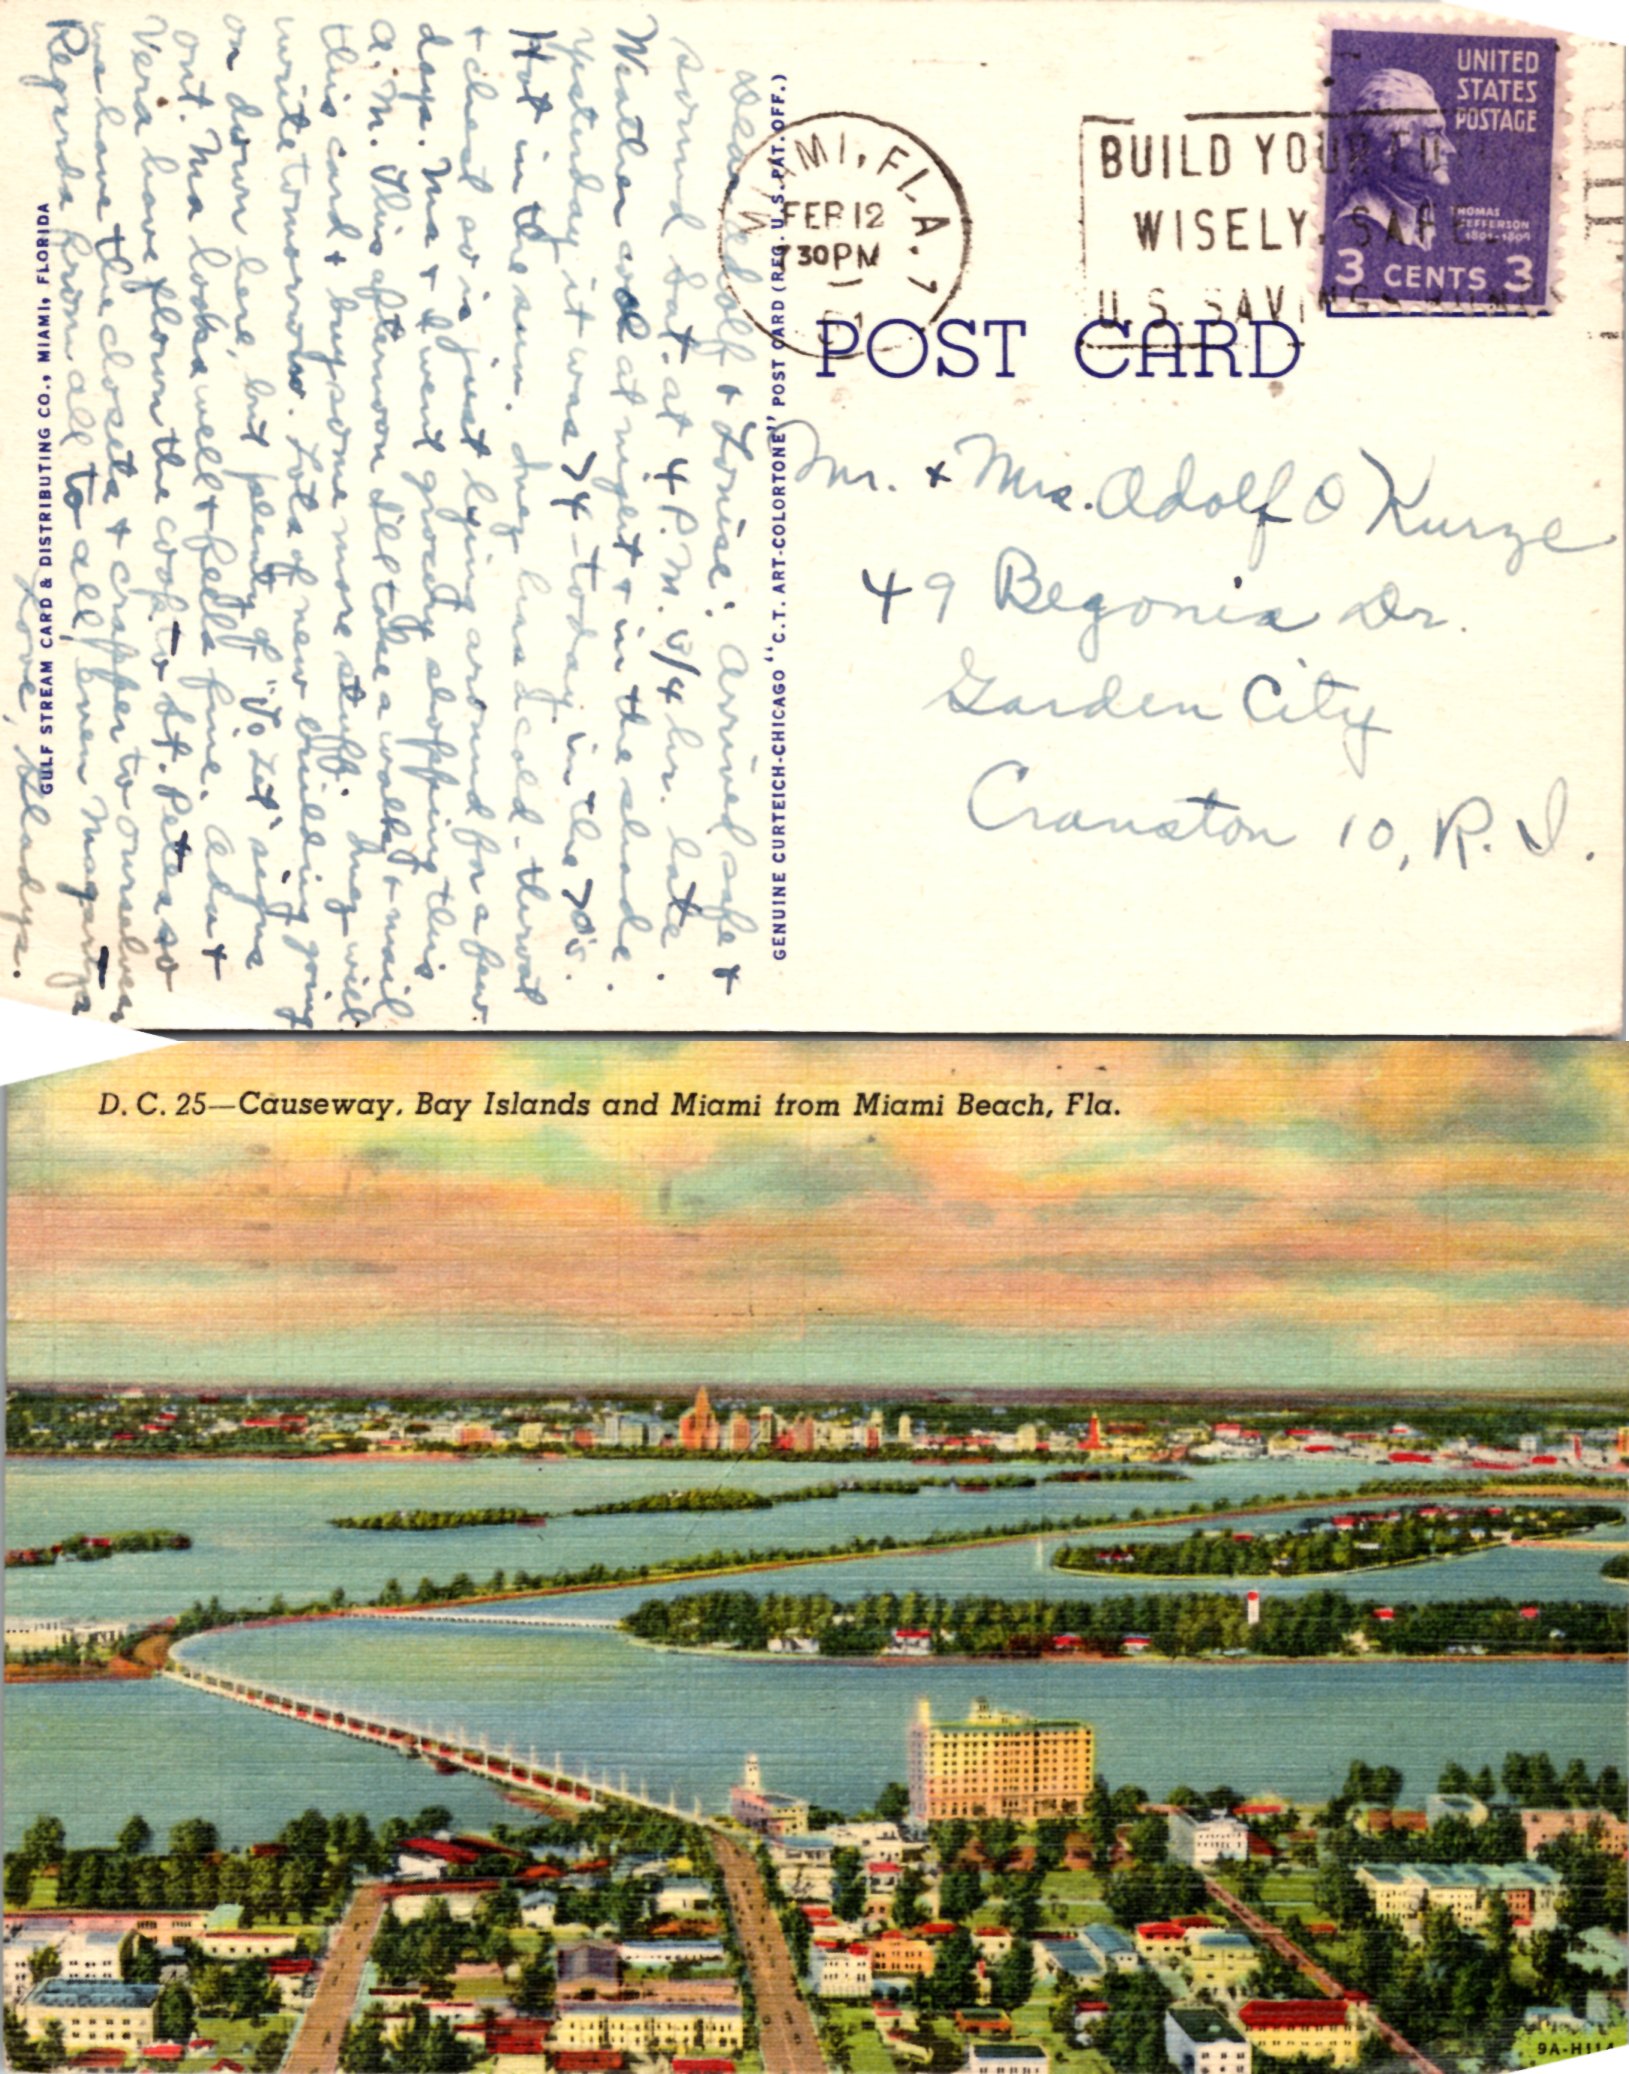 Dear Adolf & Louise: Arrived safe &
sound Sat. at 4 P.M. 3/4 hr. late.
Weather cool at night & in the shade.
yesterday it was 74 - today in the 70's.
Hot in the sun. Inez has a cold - throat
& chest so is just lying around for a few
days. Ma & I went grocery shopping this
A.M. This afternoon I'll take a walk & mail
this card & buy some more stuff. Inez will
write tomorrow. Lots of new building going
on down here, but plenty of "To Let" signs
out. Ma looks well & feels fine. Ada &
Vera have flown the coop to St. Pete so
we have the closets & crapper to ourselves
Regards from all to all, even
Love, Gladys.
GULF STREAM CARD & DISTRIBUTING CO., MIAMI, FLORIDA
GENUINE CURTEICH-CHICAGO "C.T. ART-COLORTONE" POST CARD (REG. U.S. PAT. OFF.)
MIAMI, FLA. 7
FEB 12
730 PM
BUILD YOUR FU
WISELY, SAFELY
U.S. SAVINGS BONDS
UNITED
STATES
POSTAGE
THOMAS
JEFFERSON
1801-1809
3 CENTS 3
POST CARD
Mr. & Mrs. Adolf O Kurze
49 Begonia Dr.
Garden City
Cranston 10, R. I.
D. C. 25—Causeway, Bay Islands and Miami from Miami Beach, Fla.
9A-H114